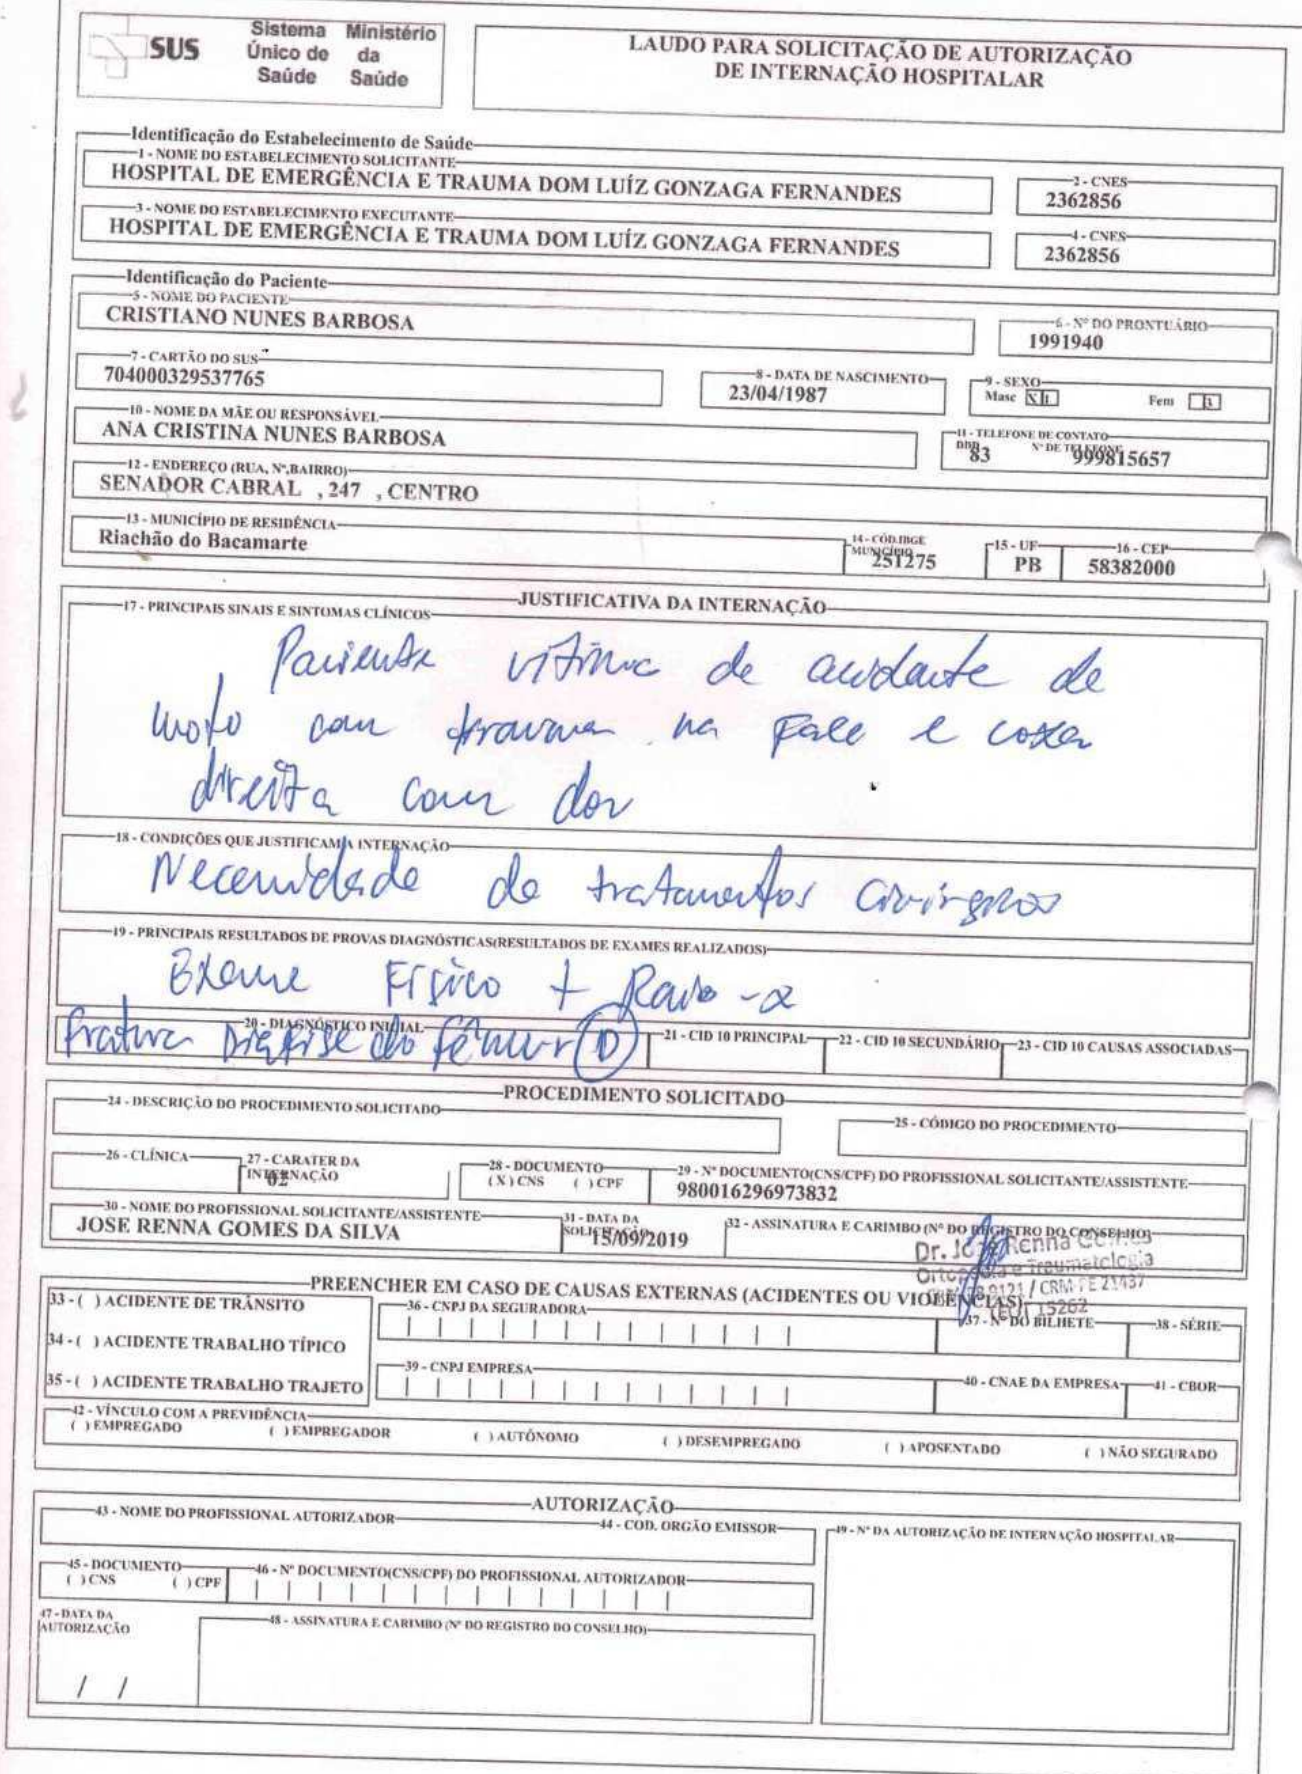 SUS
Sistema Ministério
Único de da
Saúde Saúde
LAUDO PARA SOLICITAÇÃO DE AUTORIZAÇÃO
DE INTERNAÇÃO HOSPITALAR
Identificação do Estabelecimento de Saúde
1 - NOME DO ESTABELECIMENTO SOLICITANTE
HOSPITAL DE EMERGÊNCIA E TRAUMA DOM LUÍZ GONZAGA FERNANDES
2 - CNES
2362856
3 - NOME DO ESTABELECIMENTO EXECUTANTE
HOSPITAL DE EMERGÊNCIA E TRAUMA DOM LUÍZ GONZAGA FERNANDES
4 - CNES
2362856
Identificação do Paciente
5 - NOME DO PACIENTE
CRISTIANO NUNES BARBOSA
6 - Nº DO PRONTUÁRIO
1991940
7 - CARTÃO DO SUS
704000329537765
8 - DATA DE NASCIMENTO
23/04/1987
9 - SEXO
Masc X 1 Fem 3
10 - NOME DA MÃE OU RESPONSÁVEL
ANA CRISTINA NUNES BARBOSA
11 - TELEFONE DE CONTATO
DDD Nº DE TELEFONE
83 999815657
12 - ENDEREÇO (RUA, Nº,BAIRRO)
SENADOR CABRAL , 247 , CENTRO
13 - MUNICÍPIO DE RESIDÊNCIA
Riachão do Bacamarte
14 - CÓD.IBGE
MUNICÍPIO
251275
15 - UF
PB
16 - CEP
58382000
JUSTIFICATIVA DA INTERNAÇÃO
17 - PRINCIPAIS SINAIS E SINTOMAS CLÍNICOS
Paciente vítima de acidente de
moto com trauma na face e coxa
direita com dor
18 - CONDIÇÕES QUE JUSTIFICAM A INTERNAÇÃO
Necessidade de tratamentos cirúrgicos
19 - PRINCIPAIS RESULTADOS DE PROVAS DIAGNÓSTICAS(RESULTADOS DE EXAMES REALIZADOS)
Exame Físico + Raio-x
20 - DIAGNÓSTICO INICIAL
Fratura Diáfise do fêmur D
21 - CID 10 PRINCIPAL
22 - CID 10 SECUNDÁRIO
23 - CID 10 CAUSAS ASSOCIADAS
PROCEDIMENTO SOLICITADO
24 - DESCRIÇÃO DO PROCEDIMENTO SOLICITADO
25 - CÓDIGO DO PROCEDIMENTO
26 - CLÍNICA
27 - CARATER DA
INTERNAÇÃO
02
28 - DOCUMENTO
( X ) CNS ( ) CPF
29 - Nº DOCUMENTO(CNS/CPF) DO PROFISSIONAL SOLICITANTE/ASSISTENTE
980016296973832
30 - NOME DO PROFISSIONAL SOLICITANTE/ASSISTENTE
JOSE RENNA GOMES DA SILVA
31 - DATA DA
SOLICITAÇÃO
15/09/2019
32 - ASSINATURA E CARIMBO (Nº DO REGISTRO DO CONSELHO)
Dr. José Renna Gomes
Ortopedia e Traumatologia
9121 / CRM-PE 21437
TEOT 15262
PREENCHER EM CASO DE CAUSAS EXTERNAS (ACIDENTES OU VIOLÊNCIAS)
33 - ( ) ACIDENTE DE TRÂNSITO
34 - ( ) ACIDENTE TRABALHO TÍPICO
35 - ( ) ACIDENTE TRABALHO TRAJETO
36 - CNPJ DA SEGURADORA
37 - Nº DO BILHETE
38 - SÉRIE
39 - CNPJ EMPRESA
40 - CNAE DA EMPRESA
41 - CBOR
42 - VÍNCULO COM A PREVIDÊNCIA
( ) EMPREGADO ( ) EMPREGADOR ( ) AUTÔNOMO ( ) DESEMPREGADO ( ) APOSENTADO ( ) NÃO SEGURADO
AUTORIZAÇÃO
43 - NOME DO PROFISSIONAL AUTORIZADOR
44 - COD. ORGÃO EMISSOR
49 - Nº DA AUTORIZAÇÃO DE INTERNAÇÃO HOSPITALAR
45 - DOCUMENTO
( ) CNS ( ) CPF
46 - Nº DOCUMENTO(CNS/CPF) DO PROFISSIONAL AUTORIZADOR
47 - DATA DA
AUTORIZAÇÃO
/ /
48 - ASSINATURA E CARIMBO (Nº DO REGISTRO DO CONSELHO)